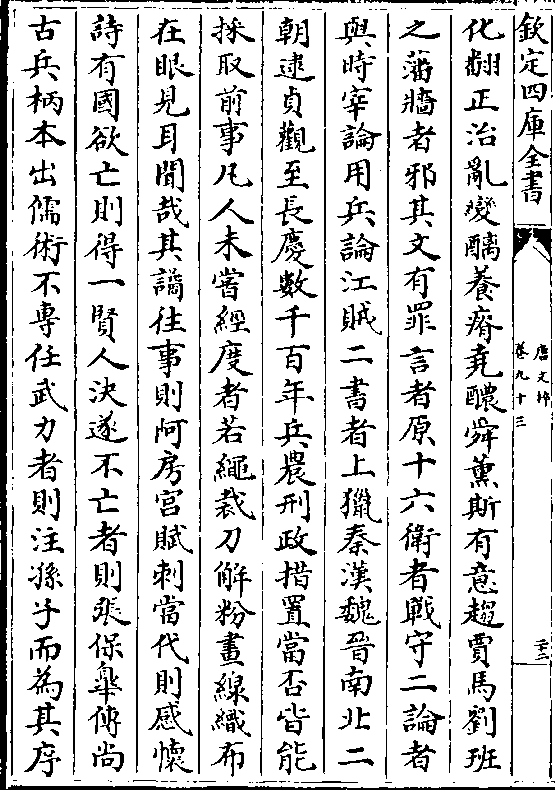 欽定四庫全書
唐文粹
卷九十三
三十二
化翻正治亂變醨養瘠堯醲舜薰斯有意趨賈馬劉班
之藩牆者邪其文有罪言者原十六衛者戰守二論者
與時宰論用兵論江賊二書者上獵秦漢魏晉南北二
朝逮貞觀至長慶數千百年兵農刑政措置當否皆能
採取前事凡人未嘗經度者若繩裁刀解粉畫線織布
在眼見耳聞哉其譎往事則阿房宮賦刺當代則感懷
詩有國欲亡則得一賢人決遂不亡者則張保皐傳尚
古兵柄本出儒術不專任武力者則注孫子而為其序